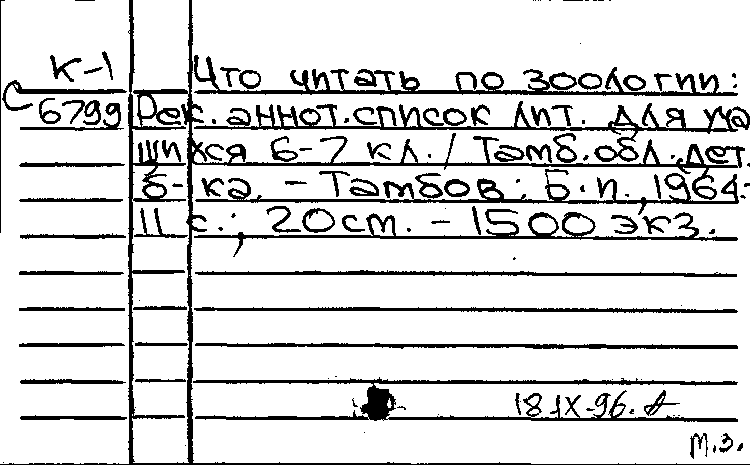 К-1 Что читать по зоологии:
С 6799 Рек. аннот. список лит. для уча
щихся 6-7 кл. / Тамб. обл. дет.
б-ка. – Тамбов: Б. п., 1964.-
11 с.; 20 см. – 1500 экз.
18 IX-96.
М.З.